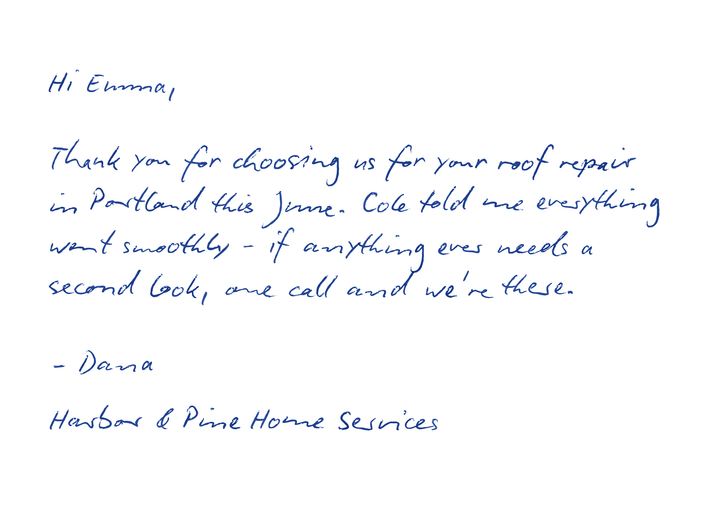 Hi Emma,
Thank you for choosing us for your roof repair
in Portland this June. Cole told me everything
went smoothly - if anything ever needs a
second look, one call and we're there.
- Dana
Harbor & Pine Home Services